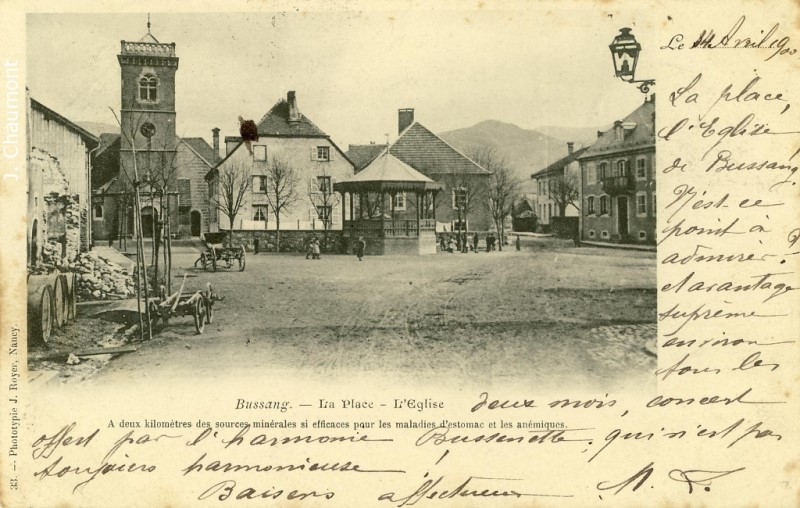 J. Chaumont
Le 14 Avril 1900
La place,
l'Eglise
de Bussang
N'est ce
point à
admirer?
et avantage
suprême
environ
tous les
deux mois, concert
offert par l'harmonie Bussenette, qui n'est pas
toujours harmonieuse !
Baisers affectueux
Bussang. — La Place - L'Eglise
A deux kilomètres des sources minérales si efficaces pour les maladies d'estomac et les anémiques.
33. — Phototypie J. Royer, Nancy.